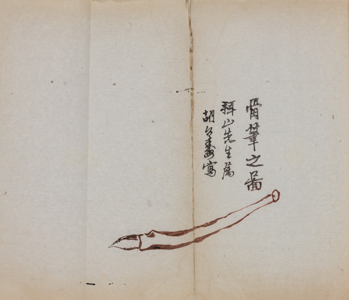 骨筆之圖
山先生屬
胡公壽寫